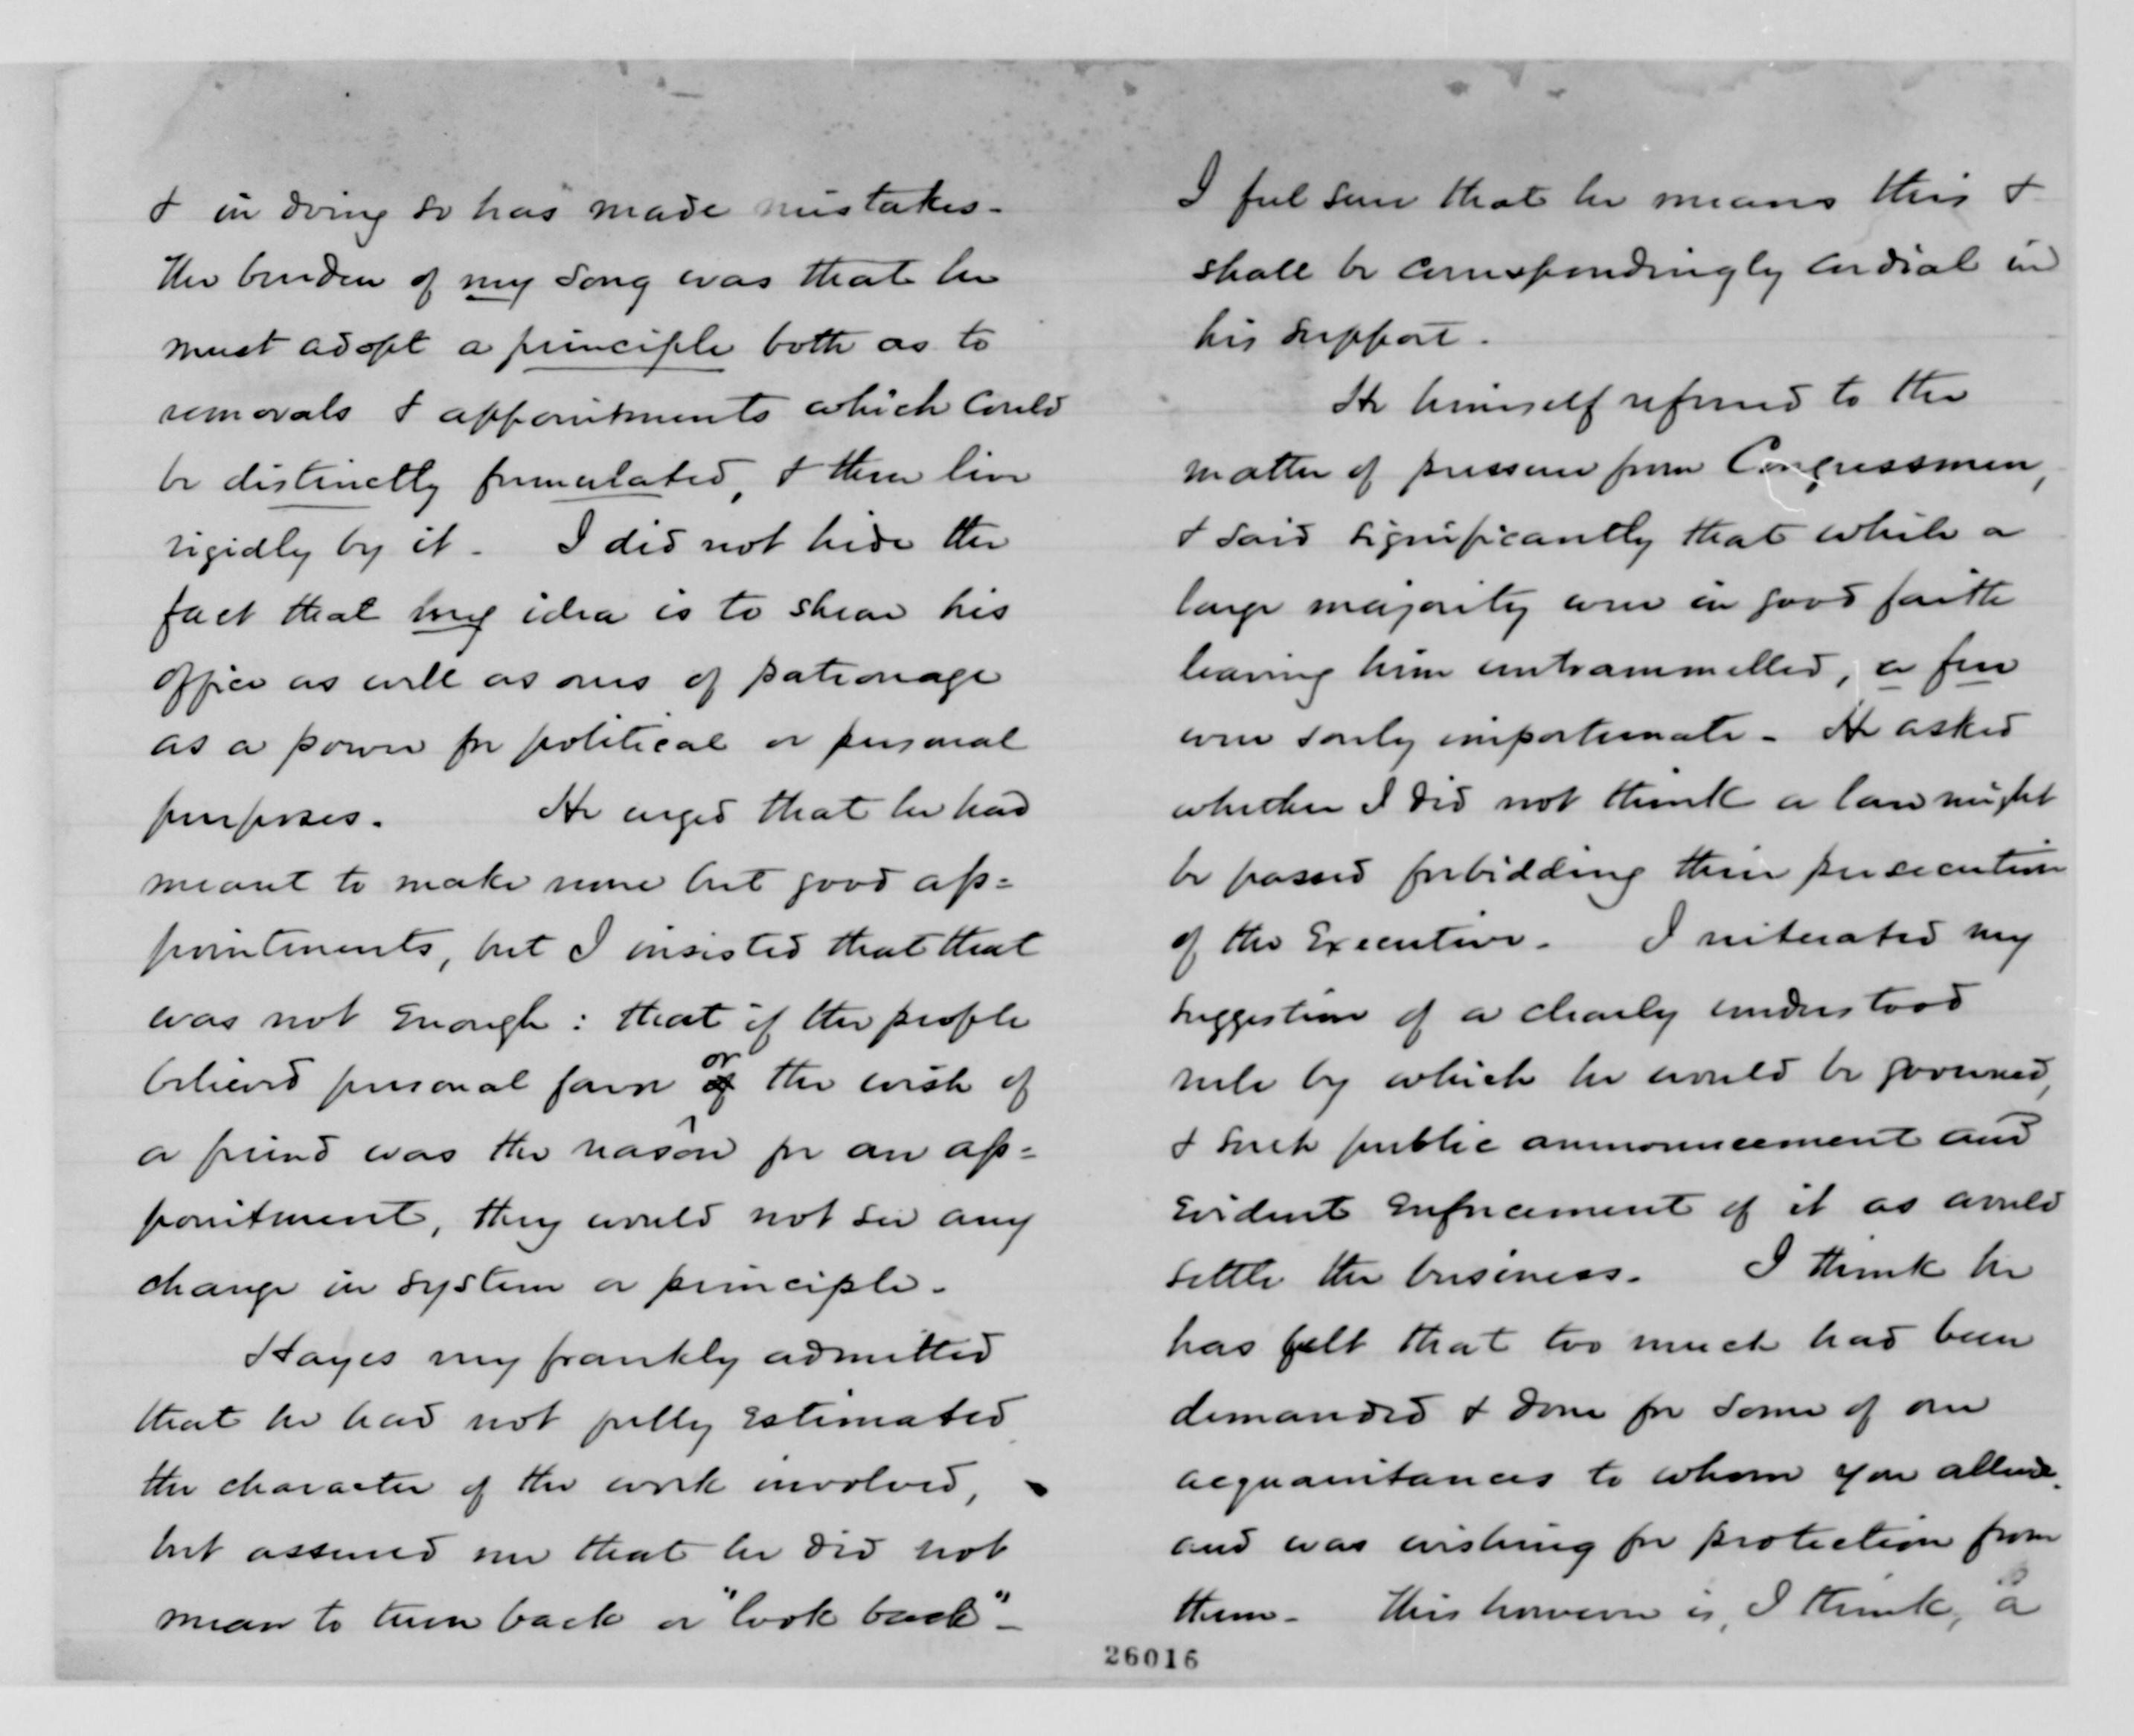 & in doing so has made mistakes-
The burden of my song was that he
must adopt a principle both as to
removals & appointments which could
be distinctly formulated, & then live
rigidly by it - I did not hide the
fact that my idea is to shear his
office as well as ours of patronage
as a power for political or personal
purposes. He urged that he had
meant to make none but good ap=
pointments, but I insisted that that
was not enough: that if the people
believed personal favor or the wish of
a friend was the reason for an ap=
pointment, they would not see any
change in system or principle-
Hayes very frankly admitted
that he had not fully estimated
the character of the work involved,
but assured me that he did not
mean to turn back or "look back"-
I feel sure that he means this &
shall be correspondingly cordial in
his support.
He himself referred to the
matter of pressure from Congressmen,
& said significantly that while a
large majority were in good faith
leaving him untrammelled, a few
were sorely importunate - He asked
whether I did not think a law might
be passed forbidding their persecution
of the Executive - I reiterated my
suggestion of a clearly understood
rule by which he would be governed,
& such public announcement and
evident enforcement of it as would
settle the business - I think he
has felt that too much had been
demanded & done for some of our
acquaintances to whom you allude,
and was wishing for protection from
them - This however is, I think, a
26016